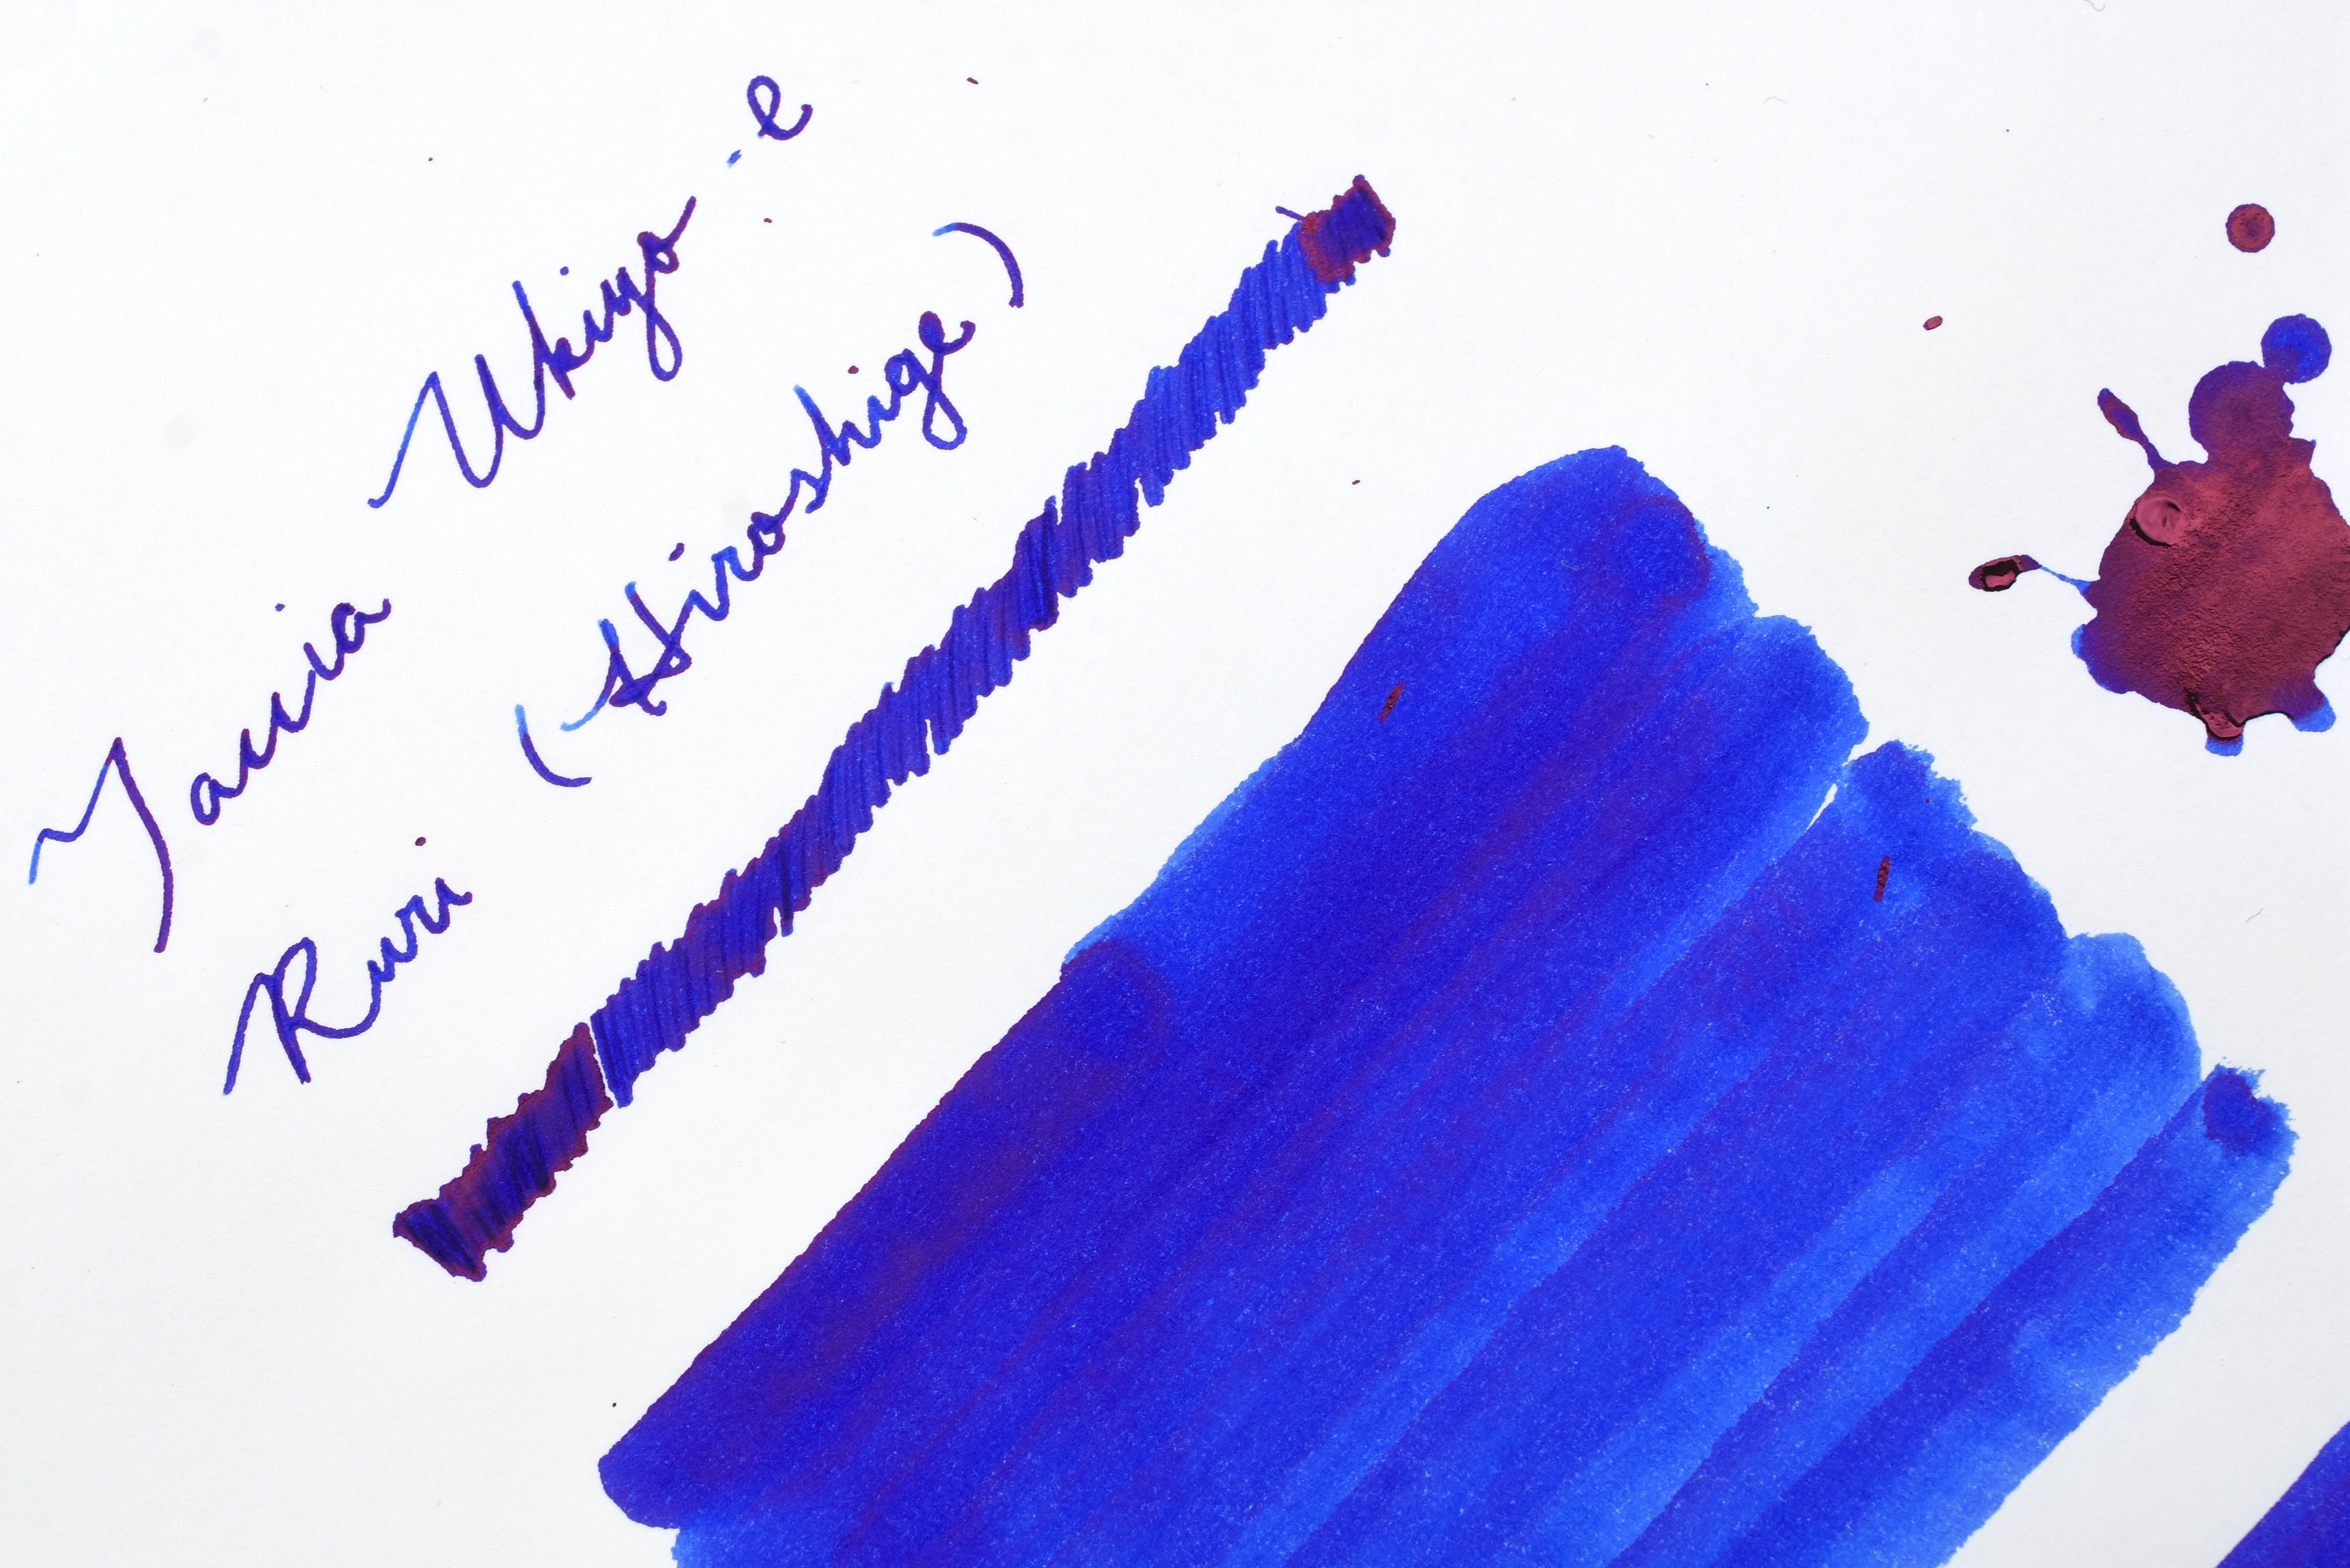 Taccia Ukiyo-e
Ruri (Hiroshige)